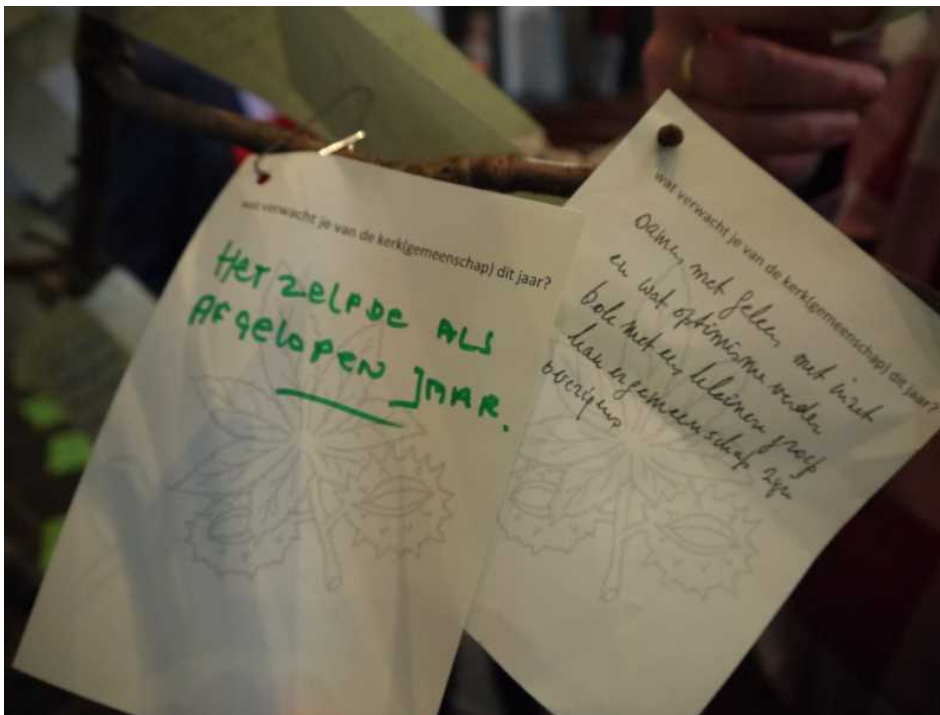 wat verwacht je van de kerk(gemeenschap) dit jaar?
Het zelfde als
Afgelopen jaar.
wat verwacht je van de kerk(gemeenschap) dit jaar?
met inzet
en wat optimisme verder
ook met een kleinere groep
kan er gemeenschap zijn
overigens